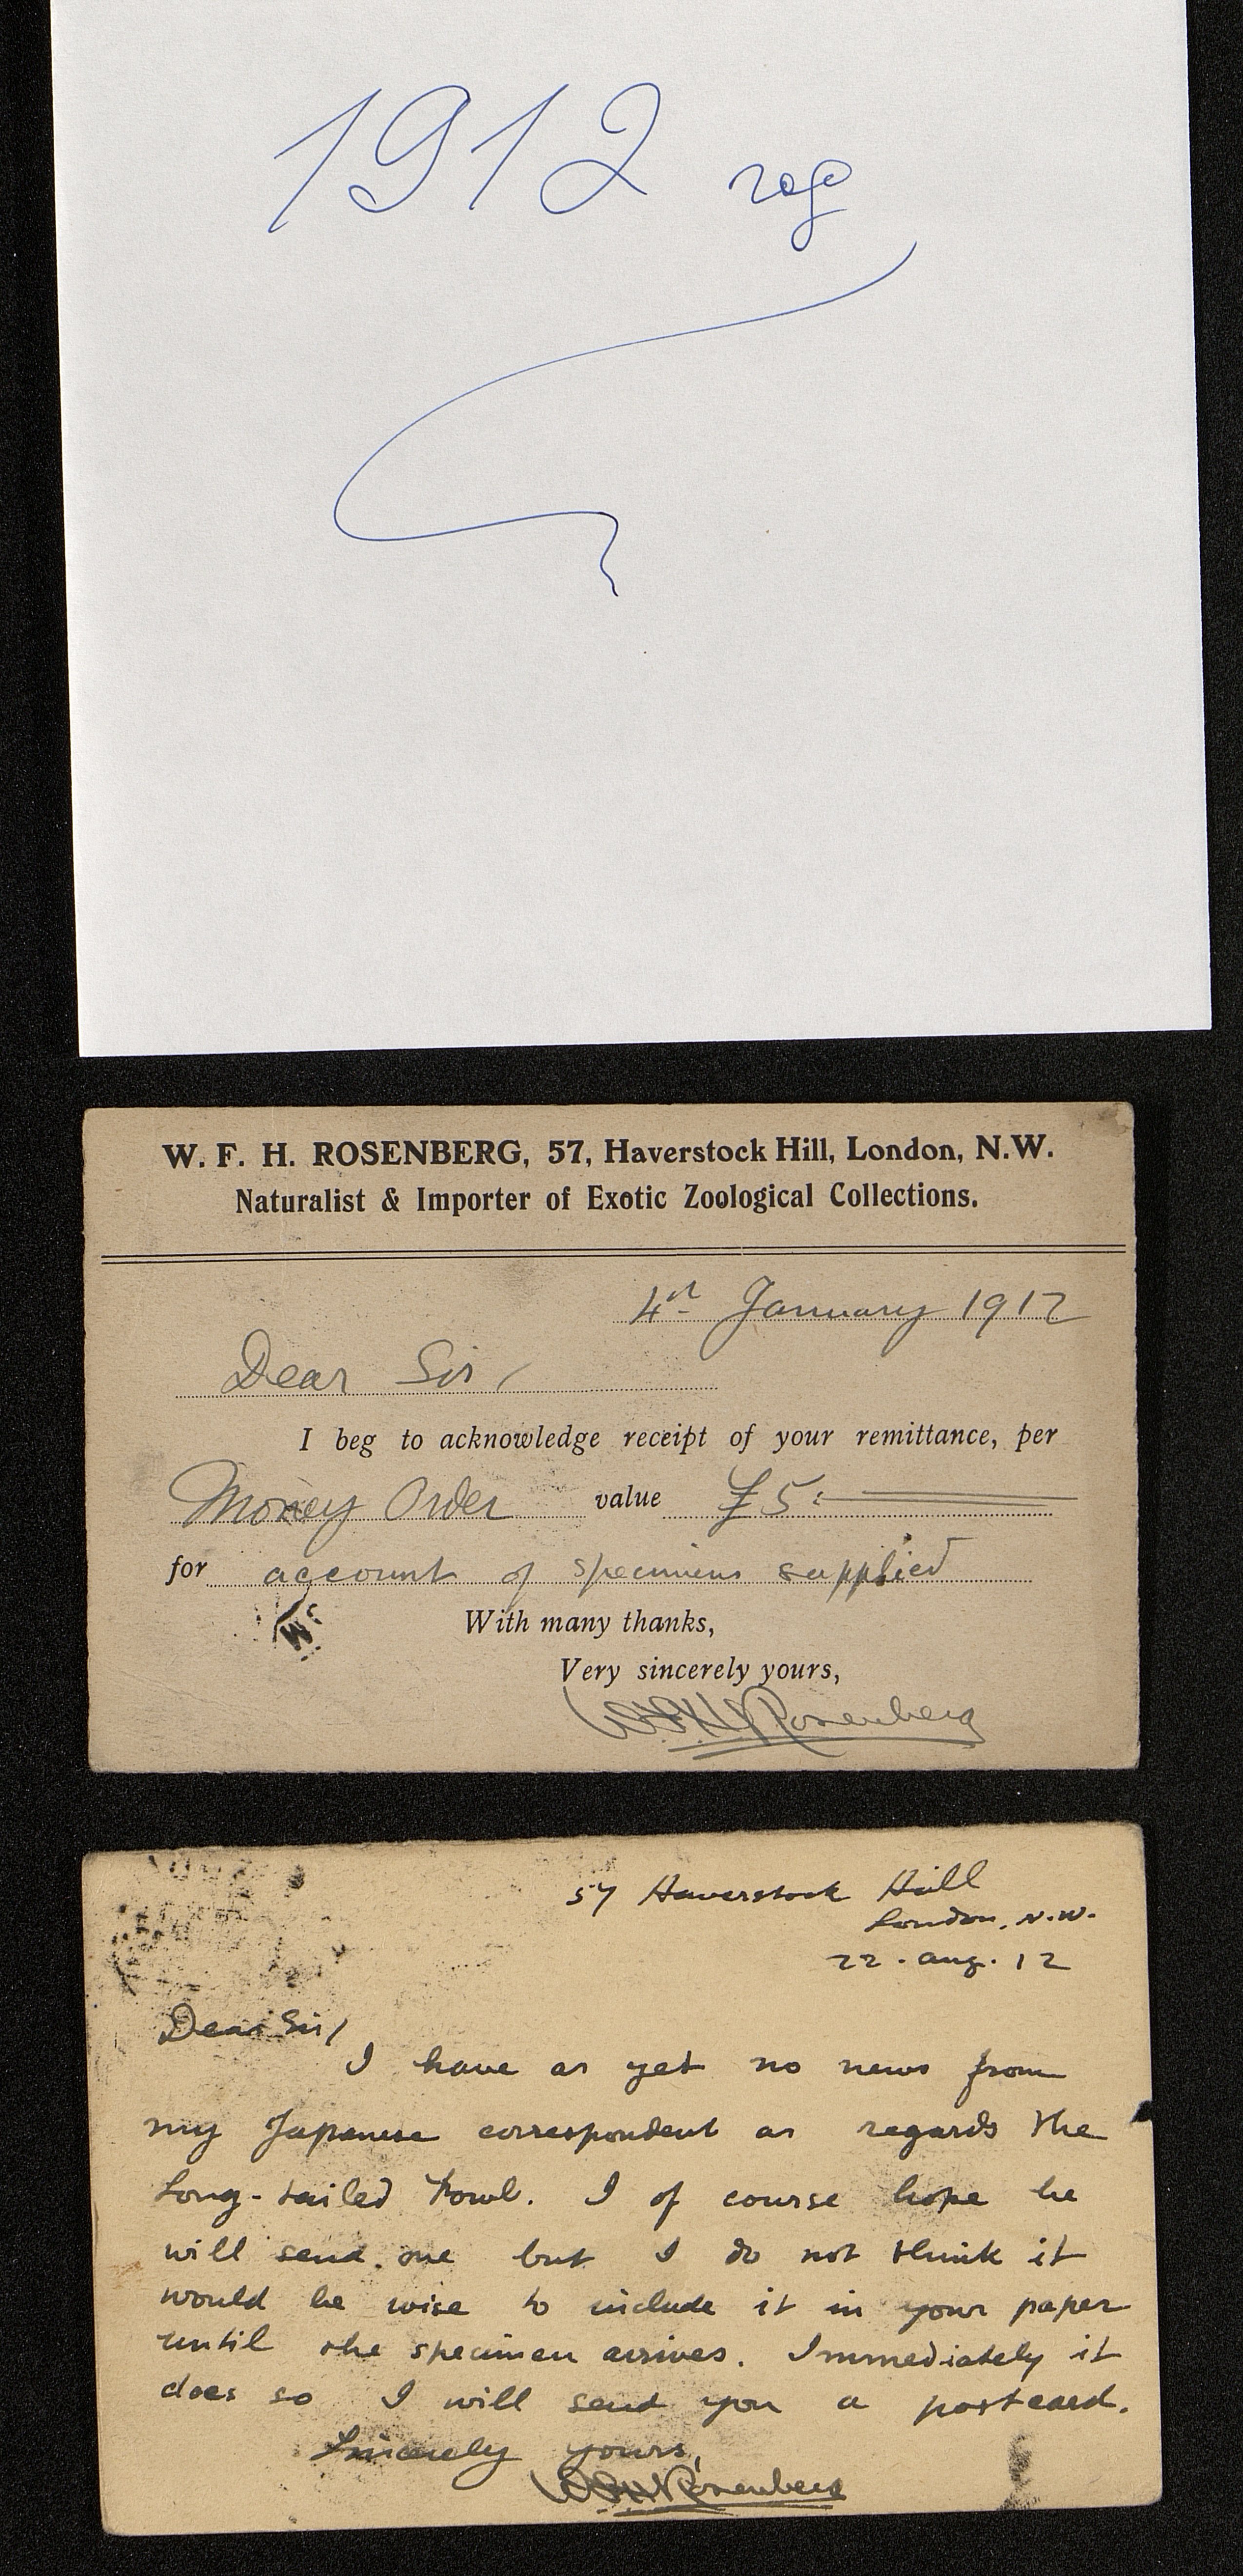 1912 год
W. F. H. ROSENBERG, 57, Haverstock Hill, London, N.W.
Naturalist & Importer of Exotic Zoological Collections.
4th January 1912
Dear Sir,
I beg to acknowledge receipt of your remittance, per
Money Order value £5:
for account of specimens supplied
With many thanks,
Very sincerely yours,
W.F.H. Rosenberg
57 Haverstock Hill
London, N.W.
22. Aug. 12
Dear Sir,
I have as yet no news from
my Japanese correspondent as regards the
Long-tailed Fowl. I of course hope he
will send one but I do not think it
would be wise to include it in your paper
until the specimen arrives. Immediately it
does so I will send you a postcard.
Sincerely yours,
W.F.H. Rosenberg